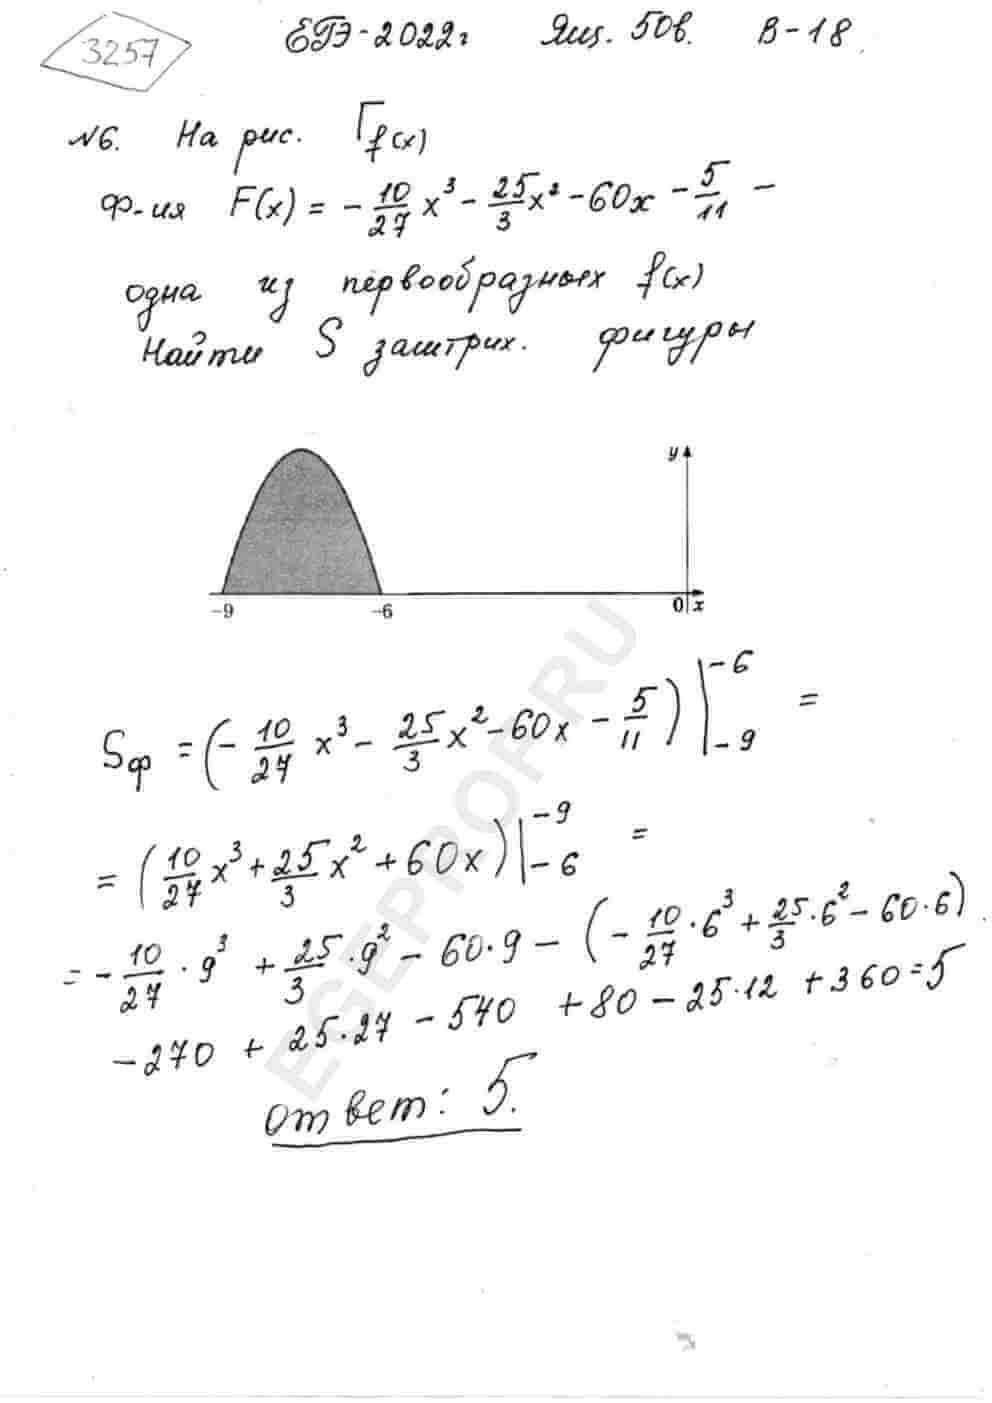 3257
ЕГЭ-2022г Ящ. 50в. В-18
№6. На рис. Γ f(x)
ф-ия F(x) = -10/27 x³ - 25/3 x² - 60x - 5/11 -
одна из первообразных f(x)
Найти S заштрих. фигуры
y
-9 -6 0 x
Sф = (-10/27 x³ - 25/3 x² - 60x - 5/11) |₋₉⁻⁶ =
= (10/27 x³ + 25/3 x² + 60x) |₋₆⁻⁹ =
= -10/27 · 9³ + 25/3 · 9² - 60·9 - (-10/27 · 6³ + 25/3 · 6² - 60·6)
-270 + 25·27 - 540 + 80 - 25·12 + 360 = 5
ответ: 5.
EGEPROF.RU